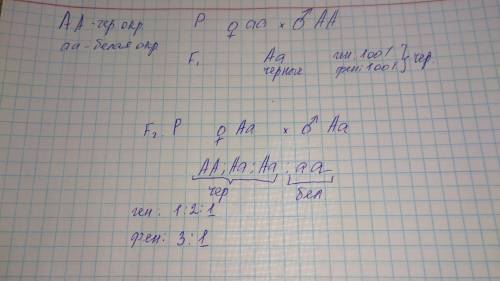 AA - чер окр P ♀ aa × ♂ AA
aa - белая окр
F₁ Aa ген: 100% } чер
черные фен: 100%
F₂ P ♀ Aa × ♂ Aa
AA; Aa; Aa; aa
чер бел
ген: 1:2:1
фен: 3:1